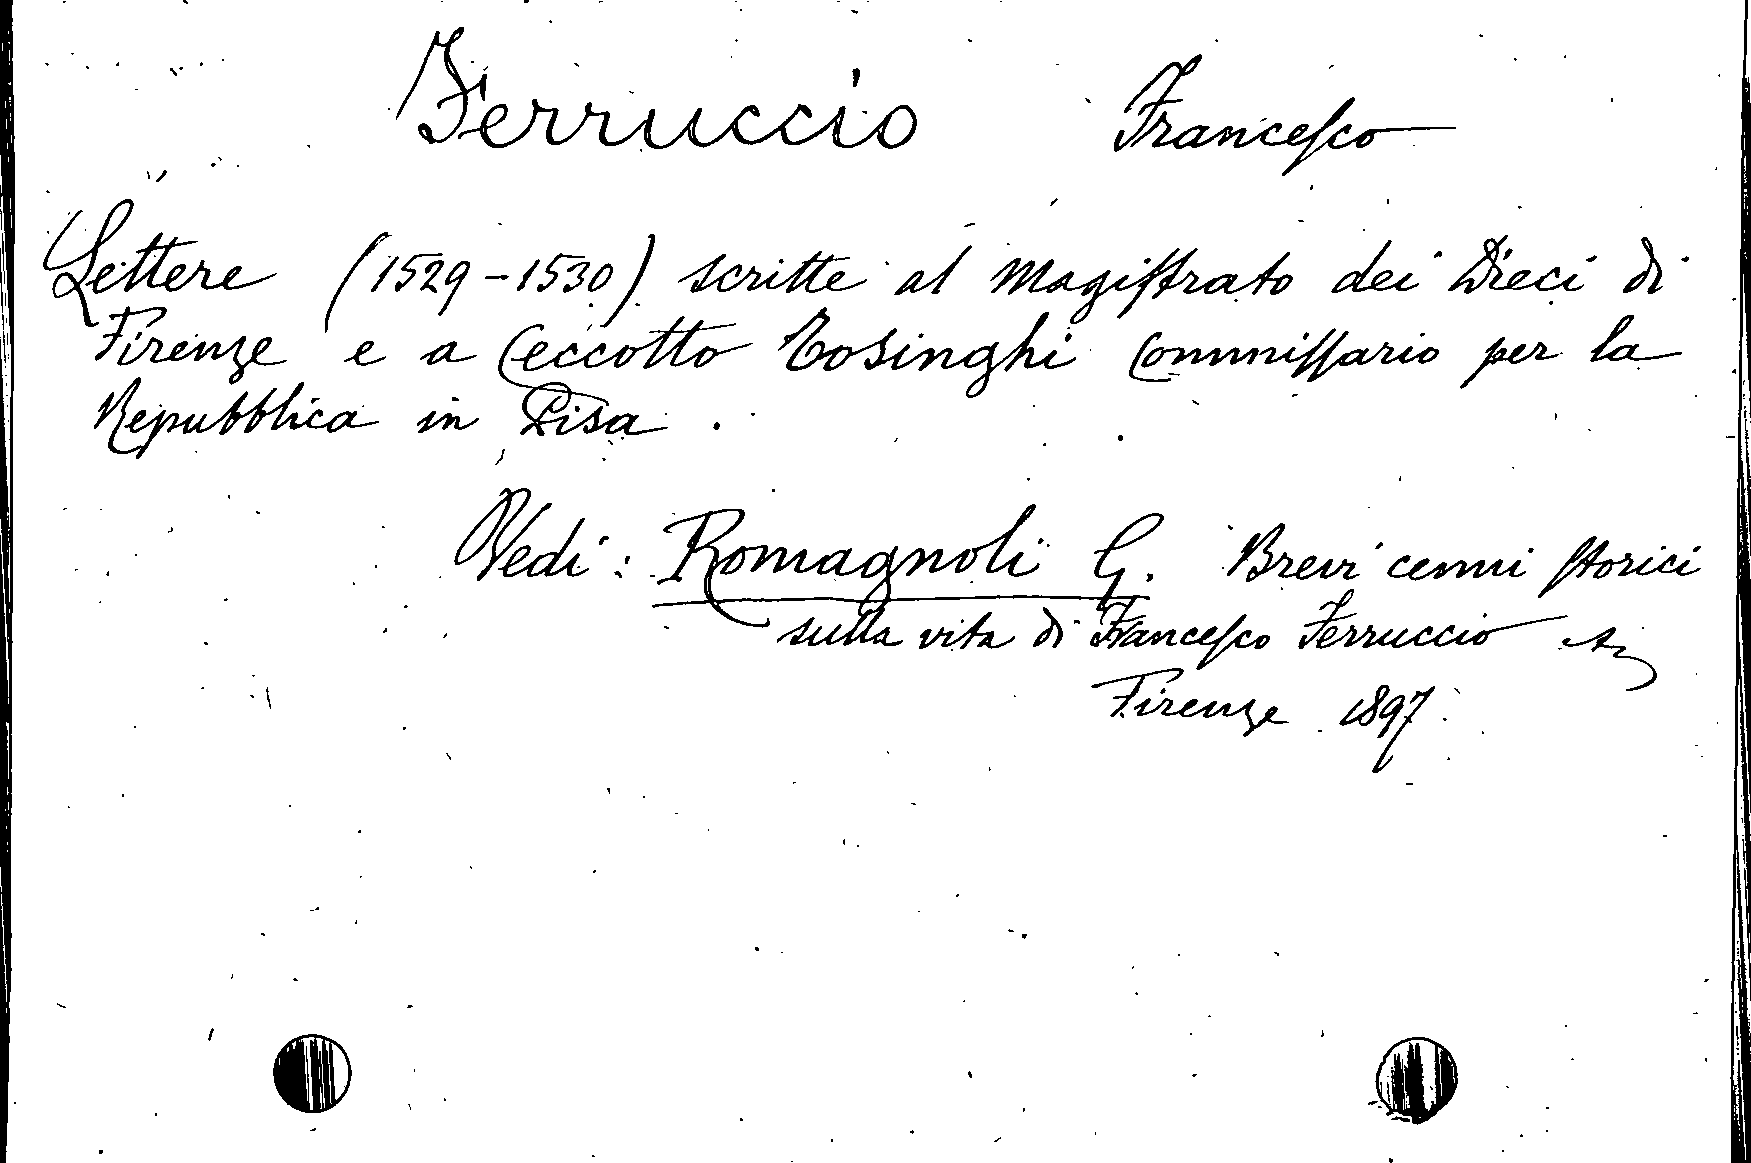 Ferruccio Francesco
Lettere (1529-1530) scritte al Magistrato dei Dieci di
Firenze e a Ceccotto Tosinghi Commissario per la
Repubblica in Pisa.
Vedi: Romagnoli G. Brevi cenni storici
sulla vita di Francesco Ferruccio
Firenze 1897